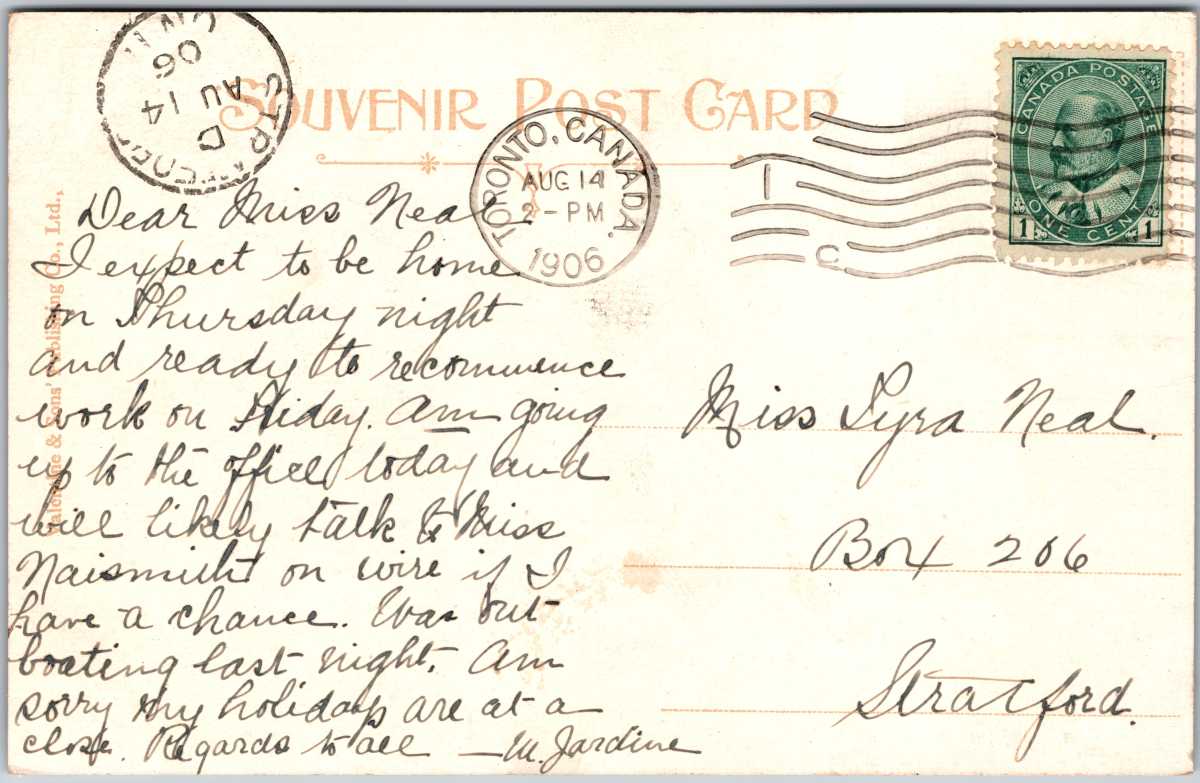 SOUVENIR POST CARD
AU 14
06
TORONTO, CANADA.
AUG 14
2-PM
1906
C
CANADA POSTAGE
1 ONE CENT 1
Valentine & Sons' Publishing Co., Ltd.,
Dear Miss Neal
I expect to be home
on Thursday night
and ready to recommence
work on Friday. Am going
up to the office today and
will likely talk to Miss
Naismith on wire if I
have a chance. Was out
boating last night. Am
sorry my holidays are at a
close. Regards to all — M. Jardine
Miss Lyra Neal.
Box 206
Stratford.